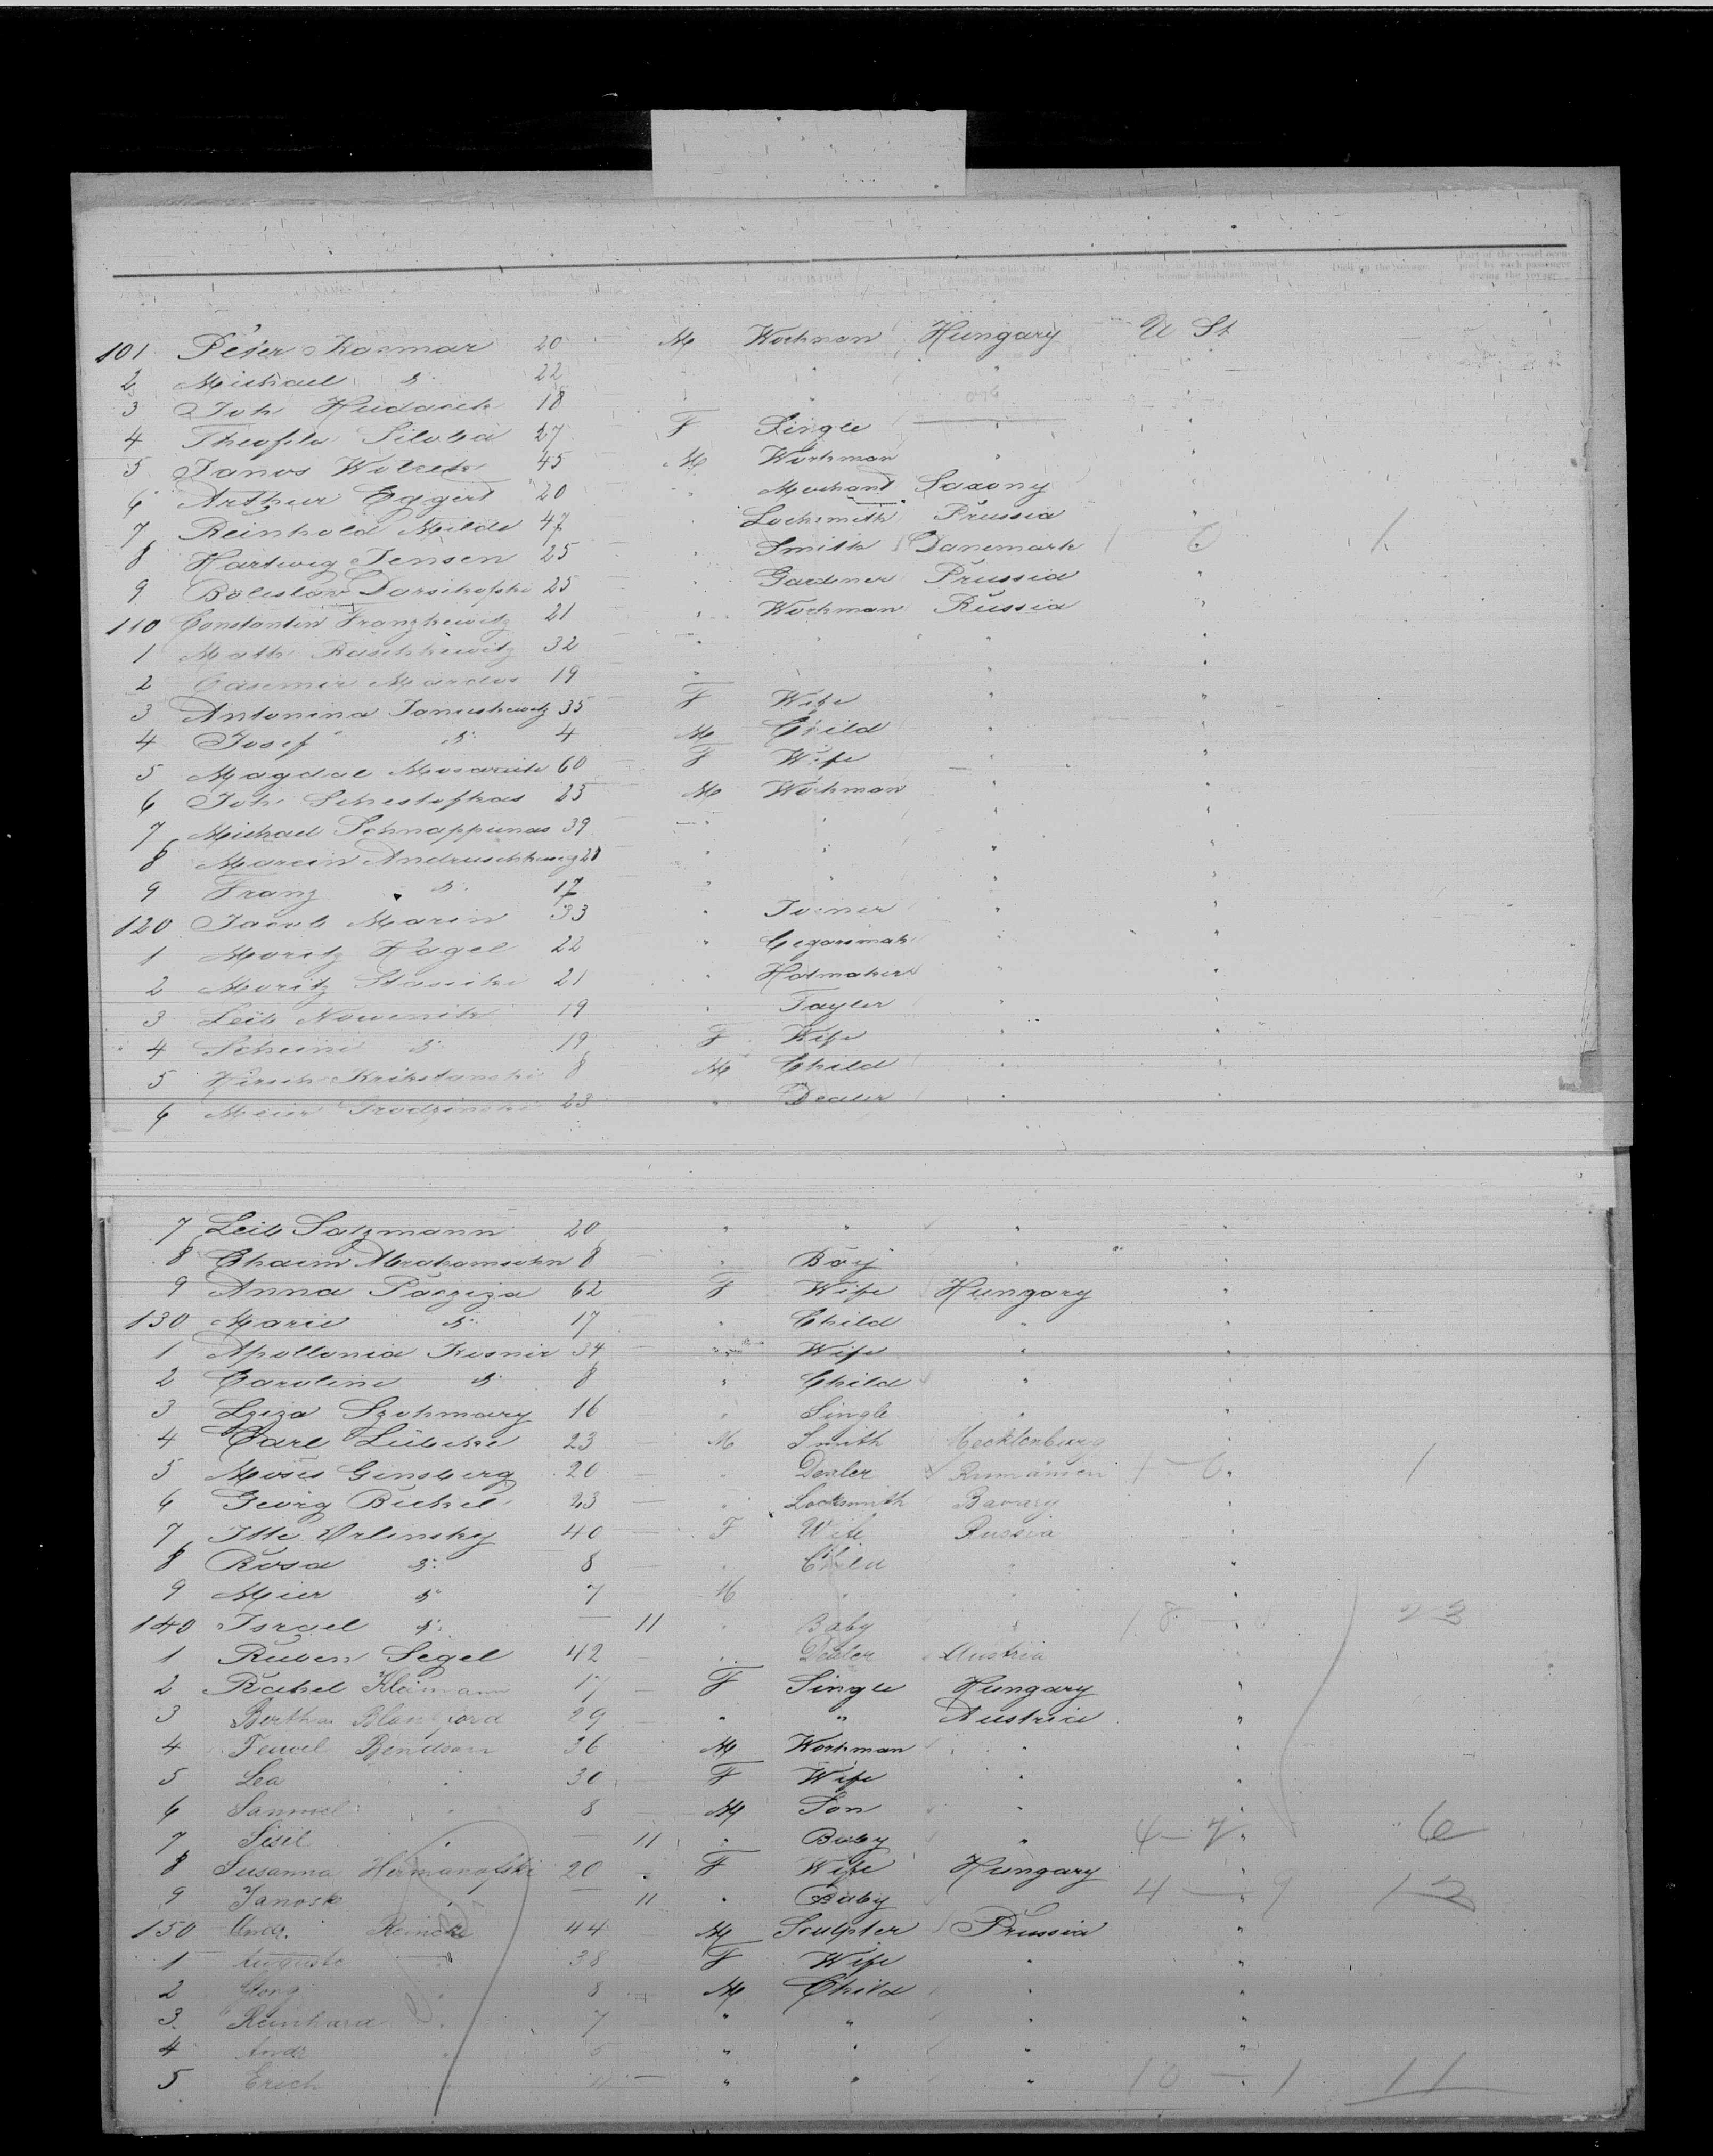 No. NAME. SEX OCCUPATION The country to which they severally belong. The country in which they intend to become inhabitants. Died on the voyage. Part of the vessel occupied by each passenger during the voyage.
101 Peter Kosmar 20 — M Workman Hungary U St
2 Michael d° 22 " " "
3 Joh Hudacik 18 " " "
4 Theofila 27 F Single " "
5 Janos 45 M Workman " "
6 Arthur Eggert 20 " Merchant Saxony "
7 Reinhold Milde 47 " Locksmith Prussia "
8 Hartwig Jensen 25 " Smith Danemark 1 — 0 1
9 Boleslav 25 " Gardener Prussia "
110 Constantin Franzkewitz 21 " Workman Russia "
1 Math Raschkewitz 32 " " " "
2 Casemir Mardos 19 " " " "
3 Antonina Januschewitz 35 F Wife " "
4 Josef d° 4 M Child " "
5 Magdal 60 F Wife " "
6 Joh 23 M Workman " "
7 Michael Schnappunas 39 " " " "
8 Marcin 28 " " " "
9 Franz d° 17 " " " "
120 Jacob Marin 33 " Joiner " "
1 Moritz Kagel 22 " Cegarsmak " "
2 Moritz 21 " Hatmaker " "
3 Leib Nowenik 19 " Tayler " "
4 Scheine d° 19 F Wife " "
5 Hirsch 8 M Child " "
6 Meier Grodzinski 23 " Dealer " "
7 Leib Salzmann 20 " " " "
8 Chaim Abrahamsohn 8 — " Boy " "
9 Anna 62 F Wife Hungary "
130 Marie d° 17 " Child " "
1 Apollonia Kosnir 34 — " Wife " "
2 Caroline d° 8 " Child " "
3 Szohmary 16 — " Single " "
4 Carl Lübcke 23 — M Smith Mecklenburg "
5 Moses Ginsberg 20 — " Dealer Rumänien 1 — 0 1
6 Georg Bickel 23 — " Locksmith Bavary "
7 Itte Orlinsky 40 — F Wife Russia "
8 Rosa d° 8 — " Child " "
9 Meier d° 7 — M " " "
140 Israel d° — 11 " Baby " 18 — 23
1 Ruben Segel 42 — " Dealer Austria "
2 Rachel Kleimann 17 — F Single Hungary "
3 Bertha 29 — " " Austria "
4 Teuvel Bendson 36 M Workman " "
5 Lea " 30 F Wife " "
6 Samuel " 8 — M Son " "
7 Sisel " — 11 " Baby " 4 — 7 6
8 Susanna 20 F Wife Hungary "
9 Janosk " — 11 " Baby " 4 — 9 12
150 Reincke 44 — M Sculpter Prussia "
1 Auguste " 38 — F Wife " "
2 Georg " 8 M Child " "
3 Reinhard " 7 " " " "
4 " " " " "
5 Erich " — " " " 10 — 1 11